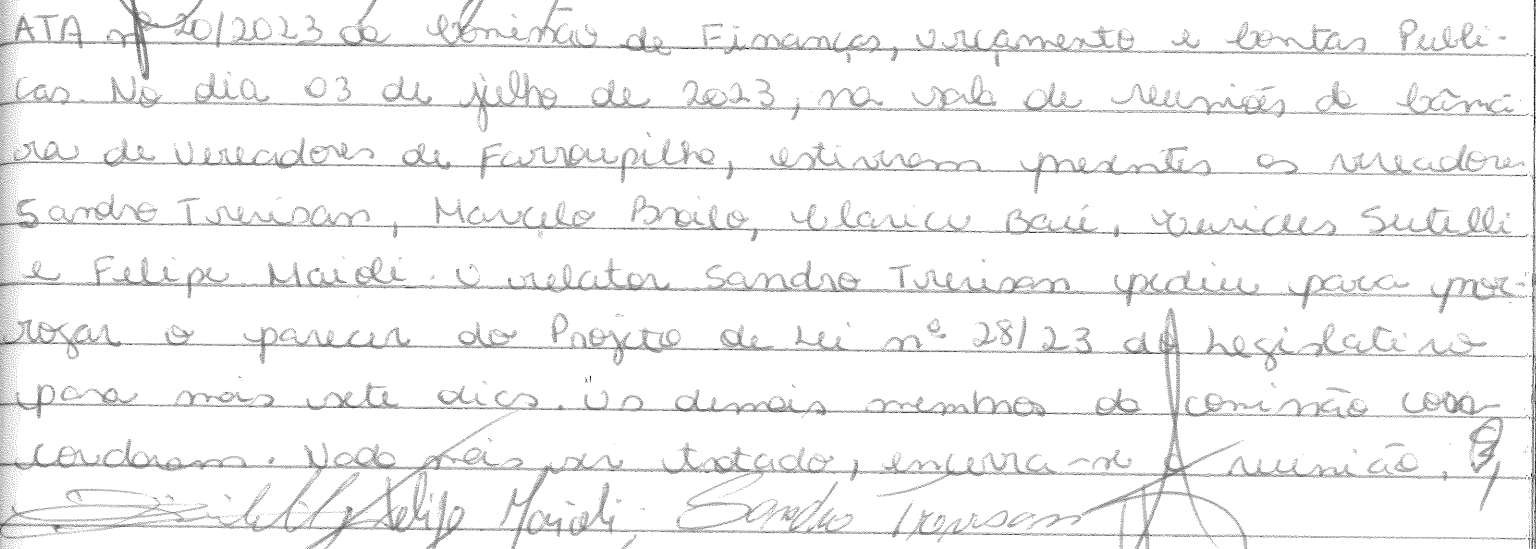 ATA nº 20/2023 da Comissão de Finanças, Orçamento e Contas Públi-
cas. No dia 03 de julho de 2023, na sala de reuniões da Câma
ra de Vereadores de Farroupilha, estiveram presentes os vereadores
Sandro Trevisan, Marcelo Broilo, Clarice Baú, Eurides Sutilli
e Felipe Maioli. O relator Sandro Trevisan pediu para pror-
rogar o parecer do Projeto de Lei nº 28/23 do Legislativo
para mais sete dias. Os demais membros da comissão con-
cordaram. Nada mais ser tratado, encerra-se a reunião.
Felipe Maioli, Sandro Trevisan